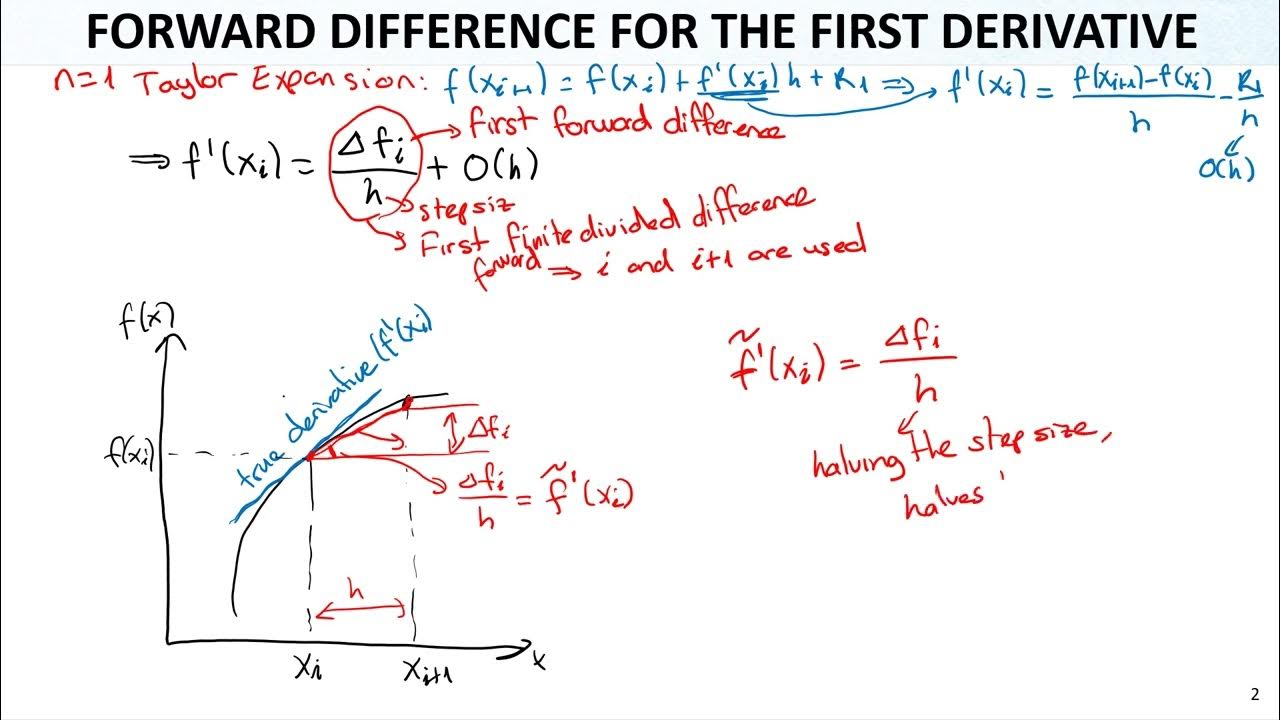 FORWARD DIFFERENCE FOR THE FIRST DERIVATIVE
n=1 Taylor Expansion: f(xi+1) = f(xi) + f'(xi) h + R1 ⇒ f'(xi) = f(xi+1)-f(xi) / h - R1 / h
O(h)
⇒ f'(xi) = Δfi / h + O(h)
first forward difference
stepsiz
First finite divided difference
forward ⇒ i and i+1 are used
f(x)
true derivative (f'(xi)
f(xi)
Δfi
Δfi / h = f̃'(xi)
h
xi
xi+1
x
f̃'(xi) = Δfi / h
halving the step size,
halves
2